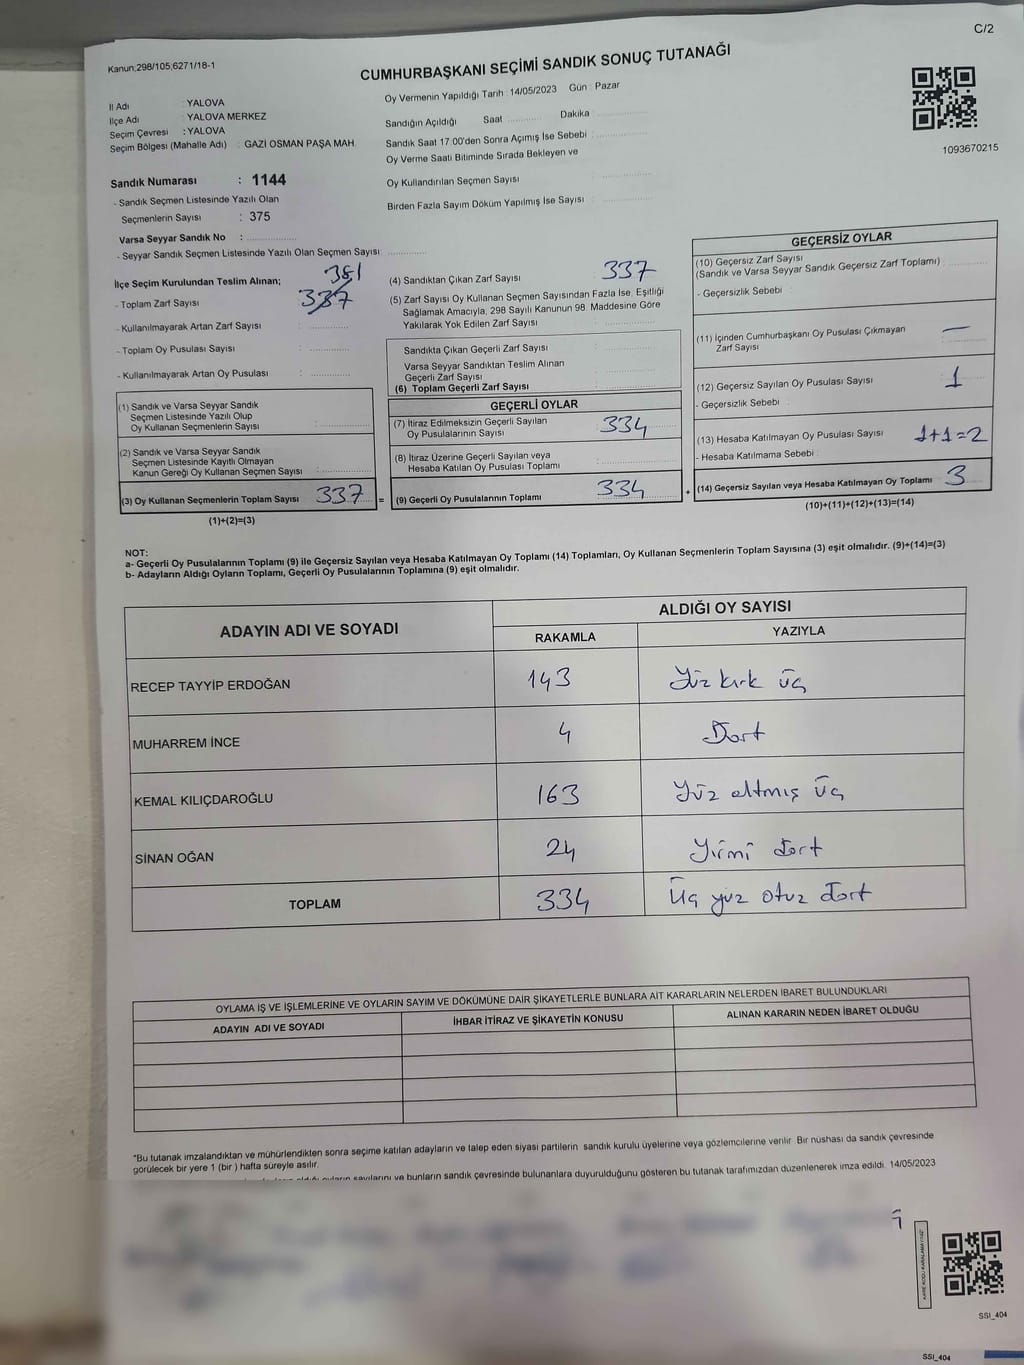 C/2
Kanun,298/105,6271/18-1
CUMHURBAŞKANI SEÇİMİ SANDIK SONUÇ TUTANAĞI
İl Adı : YALOVA
İlçe Adı : YALOVA MERKEZ
Seçim Çevresi : YALOVA
Seçim Bölgesi (Mahalle Adı) : GAZİ OSMAN PAŞA MAH.
Oy Vermenin Yapıldığı Tarih : 14/05/2023 Gün : Pazar
Sandığın Açıldığı Saat Dakika
Sandık Saat 17:00'den Sonra Açımış İse Sebebi :
Oy Verme Saati Bitiminde Sırada Bekleyen ve
Oy Kullandırılan Seçmen Sayısı
Birden Fazla Sayım Döküm Yapılmış İse Sayısı :
1093670215
Sandık Numarası : 1144
- Sandık Seçmen Listesinde Yazılı Olan
Seçmenlerin Sayısı : 375
Varsa Seyyar Sandık No :
- Seyyar Sandık Seçmen Listesinde Yazılı Olan Seçmen Sayısı:
İlçe Seçim Kurulundan Teslim Alınan;
381
- Toplam Zarf Sayısı 337
- Kullanılmayarak Artan Zarf Sayısı :
- Toplam Oy Pusulası Sayısı :
- Kullanılmayarak Artan Oy Pusulası :
(1) Sandık ve Varsa Seyyar Sandık
Seçmen Listesinde Yazılı Olup
Oy Kullanan Seçmenlerin Sayısı :
(2) Sandık ve Varsa Seyyar Sandık
Seçmen Listesinde Kayıtlı Olmayan
Kanun Gereği Oy Kullanan Seçmen Sayısı :
(3) Oy Kullanan Seçmenlerin Toplam Sayısı 337 =
(1)+(2)=(3)
(4) Sandıktan Çıkan Zarf Sayısı : 337
(5) Zarf Sayısı Oy Kullanan Seçmen Sayısından Fazla İse, Eşitliği
Sağlamak Amacıyla, 298 Sayılı Kanunun 98. Maddesine Göre
Yakılarak Yok Edilen Zarf Sayısı :
Sandıkta Çıkan Geçerli Zarf Sayısı :
Varsa Seyyar Sandıktan Teslim Alınan
Geçerli Zarf Sayısı :
(6) Toplam Geçerli Zarf Sayısı :
GEÇERLİ OYLAR
(7) İtiraz Edilmeksizin Geçerli Sayılan
Oy Pusulalarının Sayısı : 334
(8) İtiraz Üzerine Geçerli Sayılan veya
Hesaba Katılan Oy Pusulası Toplamı :
(9) Geçerli Oy Pusulalarının Toplamı : 334 +
GEÇERSİZ OYLAR
(10) Geçersiz Zarf Sayısı
(Sandık ve Varsa Seyyar Sandık Geçersiz Zarf Toplamı) :
- Geçersizlik Sebebi :
(11) İçinden Cumhurbaşkanı Oy Pusulası Çıkmayan
Zarf Sayısı : —
(12) Geçersiz Sayılan Oy Pusulası Sayısı : 1
- Geçersizlik Sebebi :
(13) Hesaba Katılmayan Oy Pusulası Sayısı : 1+1=2
- Hesaba Katılmama Sebebi :
(14) Geçersiz Sayılan veya Hesaba Katılmayan Oy Toplamı : 3
(10)+(11)+(12)+(13)=(14)
NOT:
a- Geçerli Oy Pusulalarının Toplamı (9) ile Geçersiz Sayılan veya Hesaba Katılmayan Oy Toplamı (14) Toplamları, Oy Kullanan Seçmenlerin Toplam Sayısına (3) eşit olmalıdır. (9)+(14)=(3)
b- Adayların Aldığı Oyların Toplamı, Geçerli Oy Pusulalarının Toplamına (9) eşit olmalıdır.
ADAYIN ADI VE SOYADI
ALDIĞI OY SAYISI
RAKAMLA YAZIYLA
RECEP TAYYİP ERDOĞAN 143 Yüz kırk üç
MUHARREM İNCE 4 Dört
KEMAL KILIÇDAROĞLU 163 Yüz altmış üç
SİNAN OĞAN 24 Yirmi dört
TOPLAM 334 Üç yüz otuz dört
OYLAMA İŞ VE İŞLEMLERİNE VE OYLARIN SAYIM VE DÖKÜMÜNE DAİR ŞİKAYETLERLE BUNLARA AİT KARARLARIN NELERDEN İBARET BULUNDUKLARI
ADAYIN ADI VE SOYADI İHBAR İTİRAZ VE ŞİKAYETİN KONUSU ALINAN KARARIN NEDEN İBARET OLDUĞU
"Bu tutanak imzalandıktan ve mühürlendikten sonra seçime katılan adayların ve talep eden siyasi partilerin sandık kurulu üyelerine veya gözlemcilerine verilir. Bir nüshası da sandık çevresinde
görülecek bir yere 1 (bir ) hafta süreyle asılır.
oyların sayılarını ve bunların sandık çevresinde bulunanlara duyurulduğunu gösteren bu tutanak tarafımızdan düzenlenerek imza edildi. 14/05/2023
SSİ_404
SSİ_404